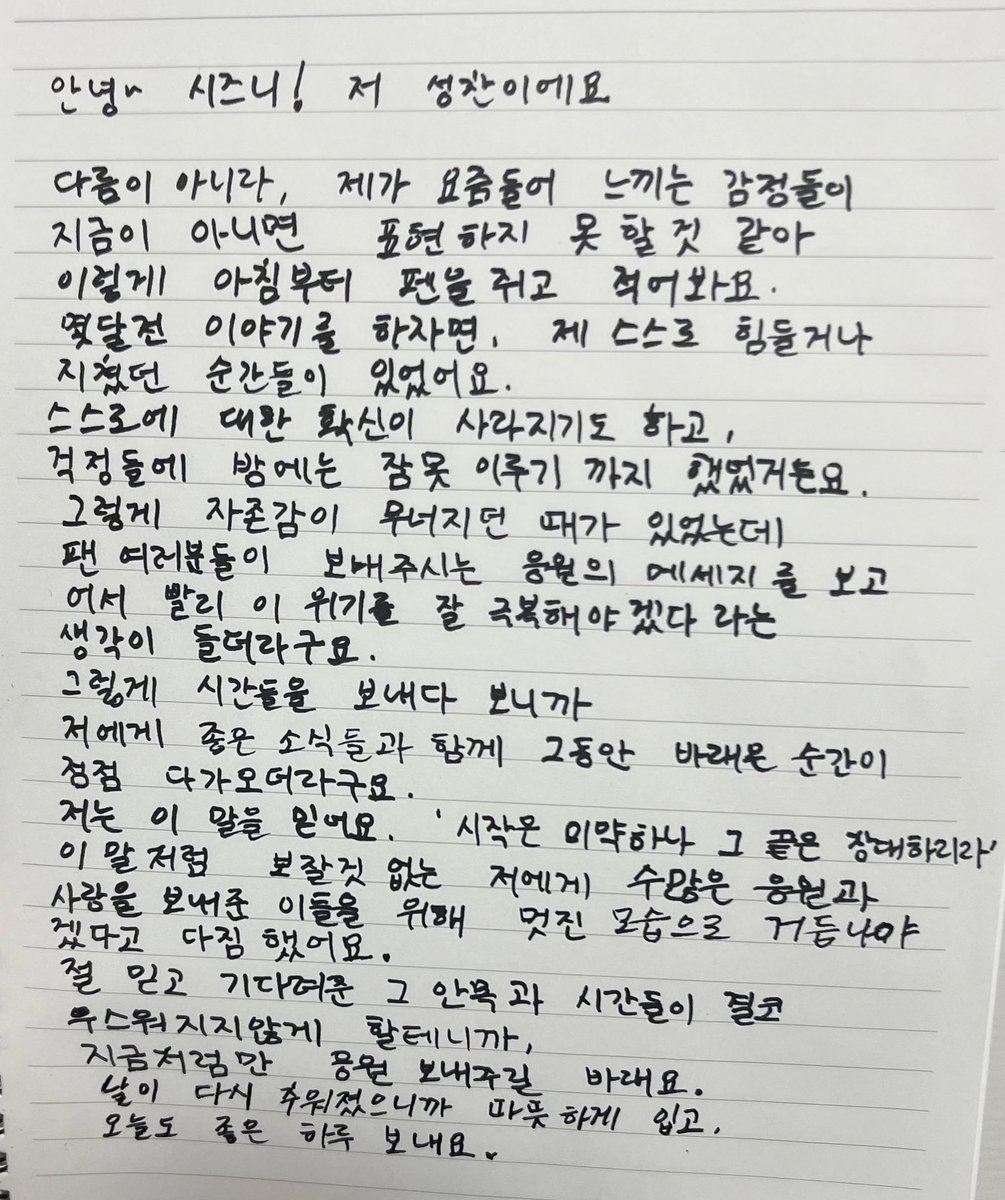 안녕~ 시즈니! 저 성찬이에요
다름이 아니라, 제가 요즘들어 느끼는 감정들이
지금이 아니면 표현하지 못 할 것 같아
이렇게 아침부터 펜을 쥐고 적어봐요.
몇달전 이야기를 하자면, 제 스스로 힘들거나
지쳤던 순간들이 있었어요.
스스로에 대한 확신이 사라지기도 하고,
걱정들에 밤에는 잠못 이루기 까지 했었거든요.
그렇게 자존감이 무너지던 때가 있었는데
팬 여러분들이 보내주시는 응원의 메세지를 보고
어서 빨리 이 위기를 잘 극복해야겠다 라는
생각이 들더라구요.
그렇게 시간들을 보내다 보니까
저에게 좋은 소식들과 함께 그동안 바래온 순간이
점점 다가오더라구요.
저는 이 말을 믿어요. '시작은 미약하나 그 끝은 창대하리라'
이 말처럼 보잘것 없는 저에게 수많은 응원과
사랑을 보내준 이들을 위해 멋진 모습으로 거듭나야
겠다고 다짐 했어요.
절 믿고 기다려준 그 안목과 시간들이 결코
우스워지지않게 할테니까,
지금처럼만 응원 보내주길 바래요.
날이 다시 추워졌으니까 따뜻하게 입고,
오늘도 좋은 하루 보내요.